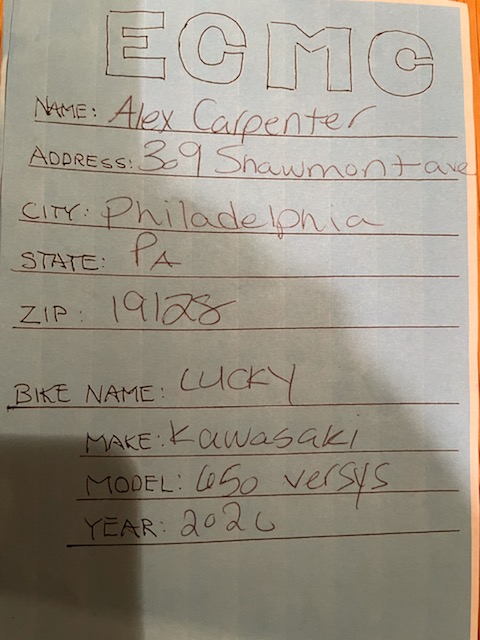 ECMC
NAME: Alex Carpenter
ADDRESS: 309 Shawmont ave
CITY: Philadelphia
STATE: PA
ZIP: 19128
BIKE NAME: LUCKY
MAKE: Kawasaki
MODEL: 650 versys
YEAR: